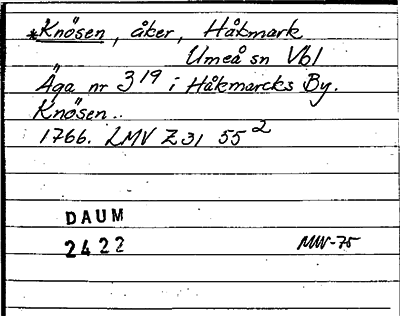 *Knösen, åker, Håkmark
Umeå sn Vbl
Äga nr 3 19 i Håkmarcks By.
Knösen..
1766. LMV Z31 55²
DAUM
2422
MW-75